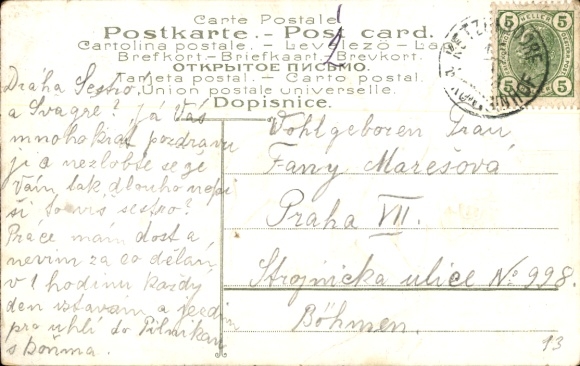 Carte Postale
Postkarte. - Post card.
Cartolina postale. - Levelező - La
Brefkort. - Briefkaart. - Brevkort.
ОТКРЫТОЕ ПИСЬМО.
Tarjeta postal. - Carto postal.
Union postale universelle.
Dopisnice.
5 HELLER 5
5 5
Dráha Sestro,
a Svagre? Já Vás
mnohokrat pozdravu
ji a nezlobte se že
Vám tak dlouho nepi
ši to viš sestro?
Práce mám dost a
nevim za co dělám
v 1 hodinu každý
den vstavám a jedem
pro uhlí do Pilnikau
s koňma.
Wohlgeboren Frau
Fany Marešová
Praha VII.
Strojnicka ulice No 998.
Böhmen.
93